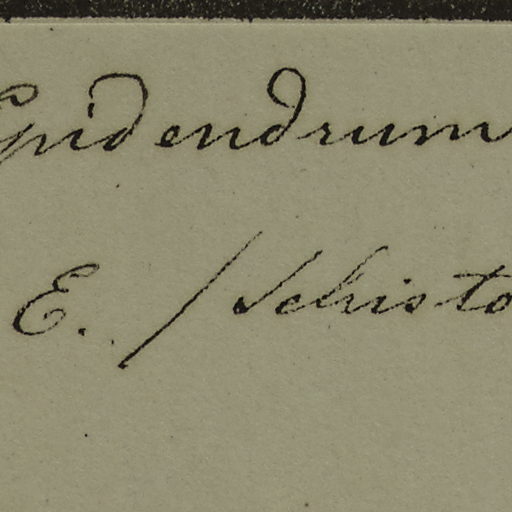 Epidendrum
E. / Schisto